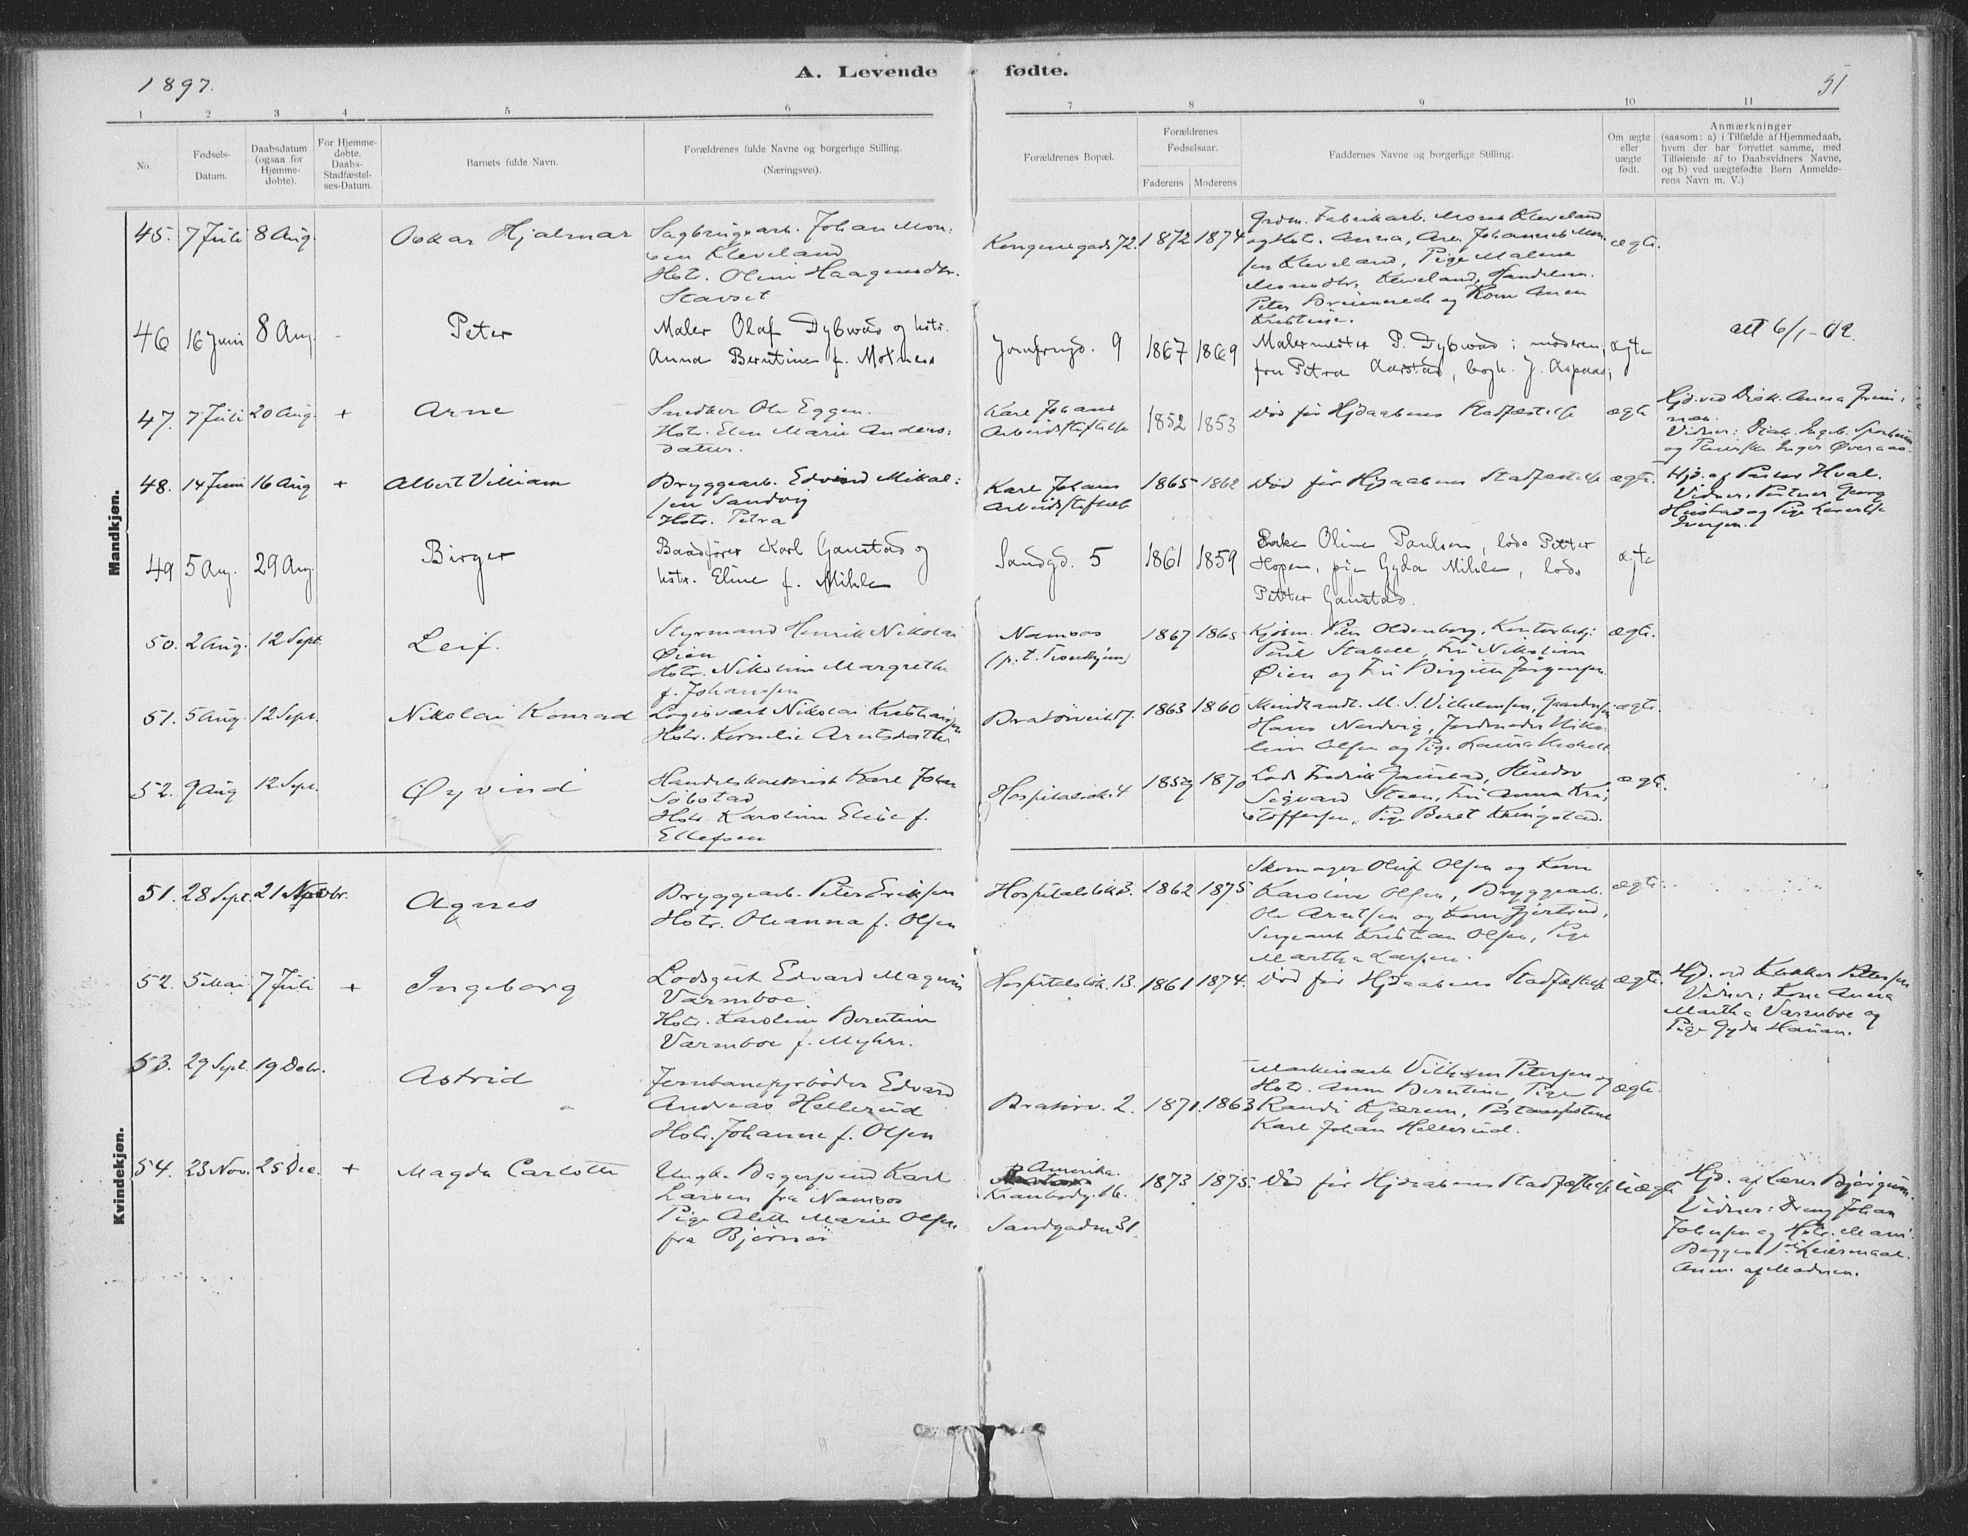 1897.
A. Levende fødte.
51
1 2 3 4 5 6 7 8 9 10 11
No.
Fødsels-
Datum.
Daabsdatum
(ogsaa for
Hjemme-
døbte).
For Hjemme-
døbte,
Daabs-
Stadfæstel-
ses-Datum.
Barnets fulde Navn.
Forældrenes fulde Navne og borgerlige Stilling.
(Næringsvei).
Forældrenes Bopæl.
Forældrenes
Fødselsaar.
Faderens Moderens
Faddernes Navne og borgerlige Stilling.
Om ægte
eller
uægte
født.
Anmærkninger
(saasom: a) i Tilfælde af Hjemmedaab,
hvem der har forrettet samme, med
Tilføiende af to Daabsvidners Navne,
og b) ved uægtefødte Børn Anmelde-
rens Navn m. V.)
Mandkjøn.
45. 7 Juli 8 Aug. Oskar Hjalmar
Sagbrugsarb. Johan Mon-
sen Kleveland
Hstr. Olin Haagensdtr.
Stavset
Kongensgade 72. 1872 1874
Grdm. Fabrikarb. Mons Kleveland
og Hstr. Anna, Arb. Johannes Mon-
sen Kleveland, Pige Malene
Monsdtr. Kleveland, Handelsm.
Peter og Kone Anen
Kristine.
ægte.
46 16 Juni 8 Aug. - Peter
Maler Olaf Dybwad og hstr.
Anna Berntine f. Motnes
Jomfrugd. 9 1867 1869
Malermester P. Dybwad; moderen,
fru Petra Aarstad, bogh. J. Aspaas;
ægte
att 6/1-02.
47. 7 Juli 20 Aug. + Arne
Snedker Ole Eggen.
Hstr. Elen Marie Anders-
datter.
Karl Johans
Arbeidsstiftelse
1852 1853
Død før Hjdaabens Stadfæstelse
ægte
Hjd. ved Diak. Anna
Vidner: Diak. Ingeb.
og Inger Øveraas.
48. 14 Juni 16 Aug + Albert William
Bryggearb. Edvind Mikal-
sen Sandvig
Hstr. Petra
Karl Johans
Arbeidsstiftelse
1865 1862
Død før Hjdaabens Stadfæstelse
ægte.
Hjd. af Pastor Hval.
Vidner, Georg
og Pige
Iversen.
49 5 Aug. 29 Aug. Birger
Baadfører Karl Ganstad og
hstr. Eline f. Mihle
Sandgd. 5 1861 1859
Enke Oline Paulsen, lods Petter
Hopen, pige Gyda Mihle, lods
Petter Ganstad.
ægte
50. 2 Aug. 12 Sept. Leif.
Styrmand Henrik Nikolai
Øien
Hstr. Nikoline Margrethe
f. Johanssen
Namsos
(p.t. Trondhjem)
1867 1865
Kjøbm. Peter Oldenborg, Kontorbetj.
Stabell, Fru Nikoline
Øien og Fru Birgitte Jørgensen
ægte.
51. 5 Aug. 12 Sept. Nikolai Konrad
Logisvært Nikolai Kristiansen
Hstr. Kornelie Arntsdatter
Bratørveit 7. 1863 1860
M. S. Vilhelmsen,
Hans Nordvig, Jordmoder Niko-
line Olsen og Pige Laura
ægte.
52. 9 Aug 12 Sept. Øyvind
Karl Johan
Søbstad
Hstr. Karoline Elise f.
Ellefsen
Hospitalslk. 4 1859 1870
Lods Fredrik Ganstad,
Sigvard Steen, Fru Anna Kri-
stoffersen, Pige Beret Kringstad.
ægte.
Kvindekjøn.
51. 28 Sept. 21 Novbr. Agnes
Bryggearb. Peter Eriksen
Hstr. Oleanna f. Olsen
Hospitalslk 3. 1862 1875
Skomager Oluf Olsen og Kone
Karoline Olsen, Bryggearb.
Ole Arntsen og Kone Gjertrud,
Sergeant Kristian Olsen, Pige
Martha Larsen.
ægte.
52. 5 Mai 7 Juli + Ingeborg
Lodsgut Edvard Magnus
Værmboe
Hstr. Karoline Berntine
Værmboe f. Myhre.
Hospitalslk. 13. 1861 1874.
Død før Hjdaabens Stadfæstelse
ægte.
Hjd. ved Klokker Petersen
Vidner: Kone Anna
Martha Værmboe og
Pige Gyda Hansen.
53. 29 Sept. 19 Debr. Astrid
Jernbanefyrbøder Edvard
Andreas Hellerud
Hstr. Johanne f. Olsen
Bratørv. 2. 1871. 1863
Maskinarb. Vilhelm Petersen og
Hstr. Anna Berntine, Pige
Randi Kjæren,
Karl Johan Hellerud.
ægte.
54. 23 Nov. 25 Dec. + Magda Carlotte
Ungk. Bagersvend Karl
Larsen fra Namsos
Pige Aleth Marie Olsen
fra Bjørnør
Amerika.
Kranbodg. 16.
Sandgaden 31.
1873 1875.
Død før Hjdaabens Stadfæstelse
uægte
Hjd. af Lærer Bjørgum.
Vidner: Dreng Johan
Johnsen og Hstr. Marie
Begges 1ste Leiermaal.
Anm. af Modren.